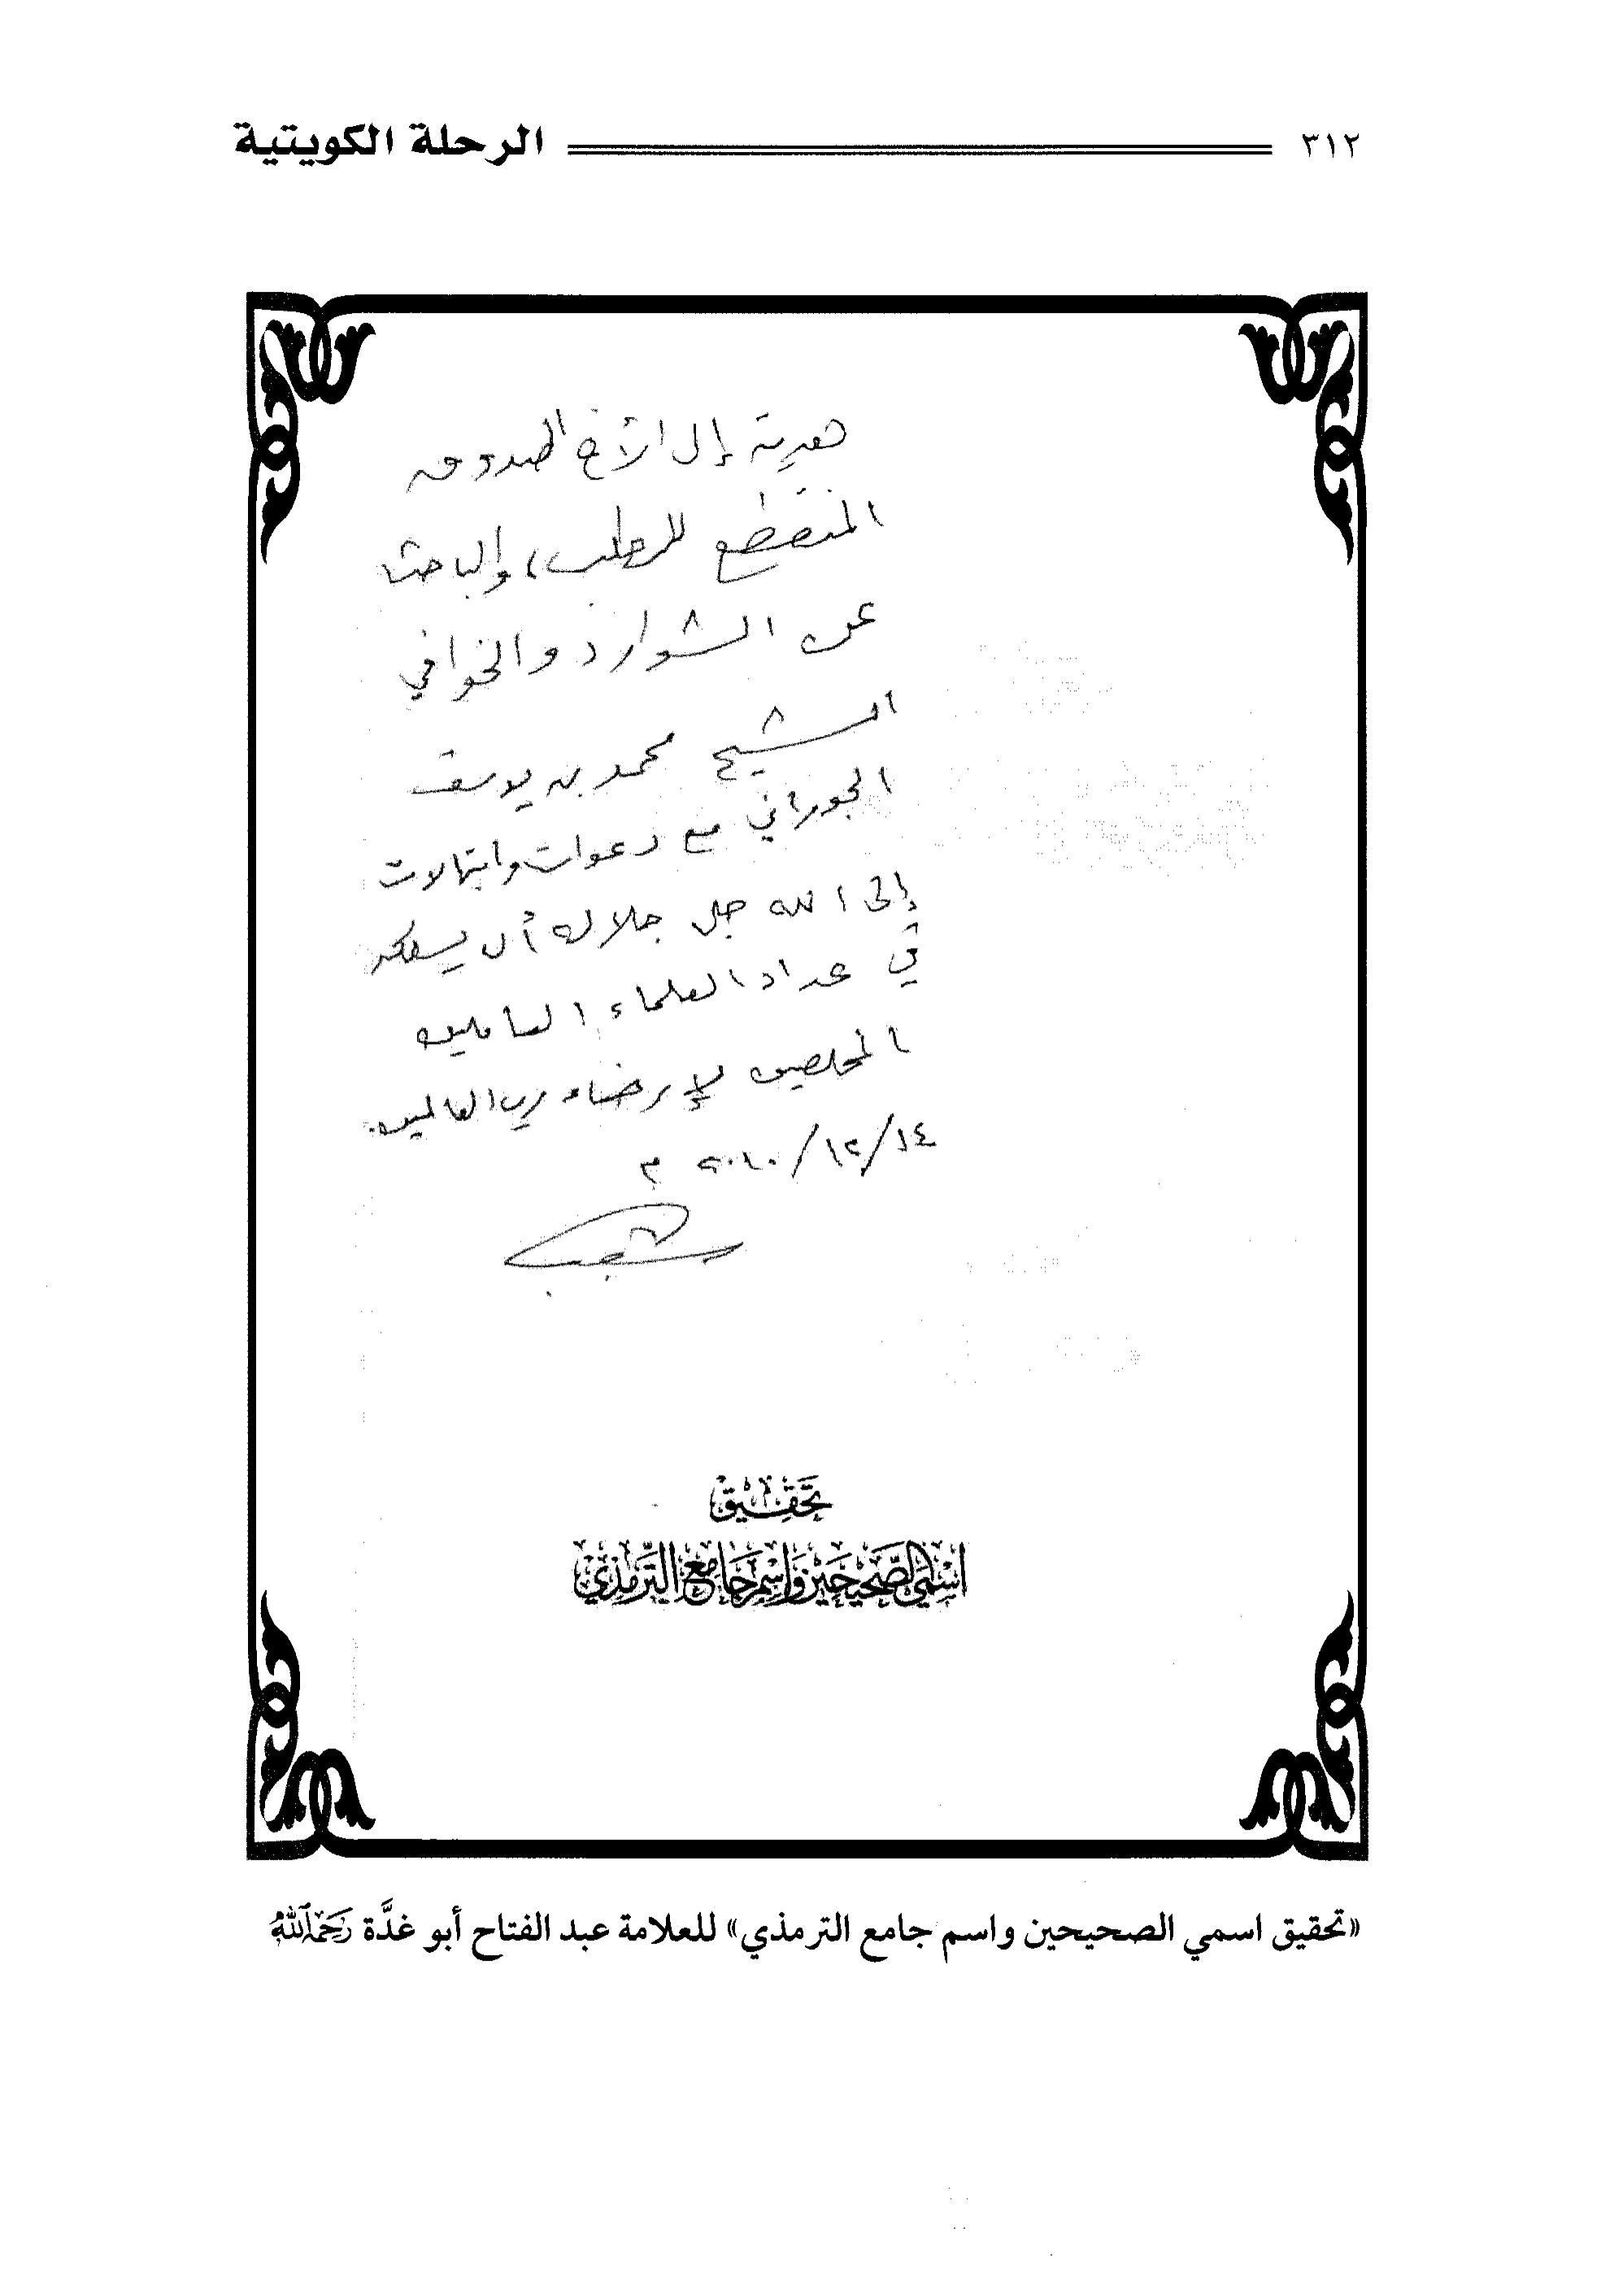 ٣١٢ الرحلة الكويتية
هدية إلى الأخ الصدوق
المنقطع للطلب، والباحث
عن الشوارد والخوافي
الشيخ محمد بن يوسف
الجوراني مع دعوات وابتهالات
إلى الله جل جلاله أن يسلكه
في عداد العلماء العاملين
المخلصين لإرضاء رب العالمين.
١٤/١٢/٢٠١٠ م
تَحقِيق
اسمَي الصَّحِيحَين وَاسْم جَامِع التِّرمذي
«تحقيق اسمي الصحيحين واسم جامع الترمذي» للعلامة عبد الفتاح أبو غدَّة رَحِمَهُ اللَّهُ